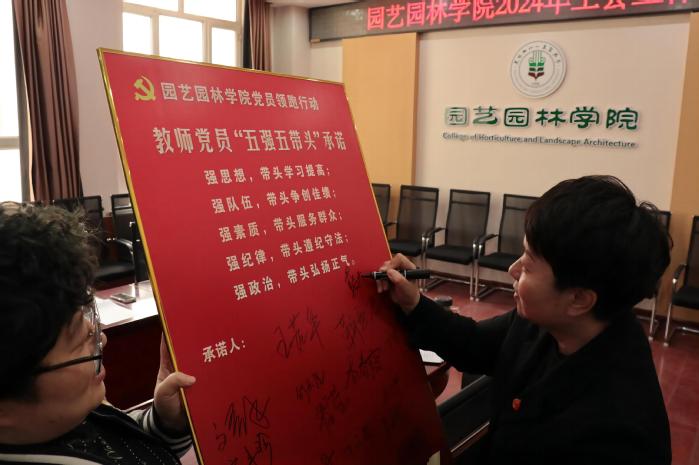 园艺园林学院2024年工会工作
园艺园林学院
College of Horticulture and Landscape Architecture
园艺园林学院党员领跑行动
教师党员“五强五带头”承诺
强思想，带头学习提高；
强队伍，带头争创佳绩；
强素质，带头服务群众；
强纪律，带头遵纪守法；
强政治，带头弘扬正气。
承诺人：